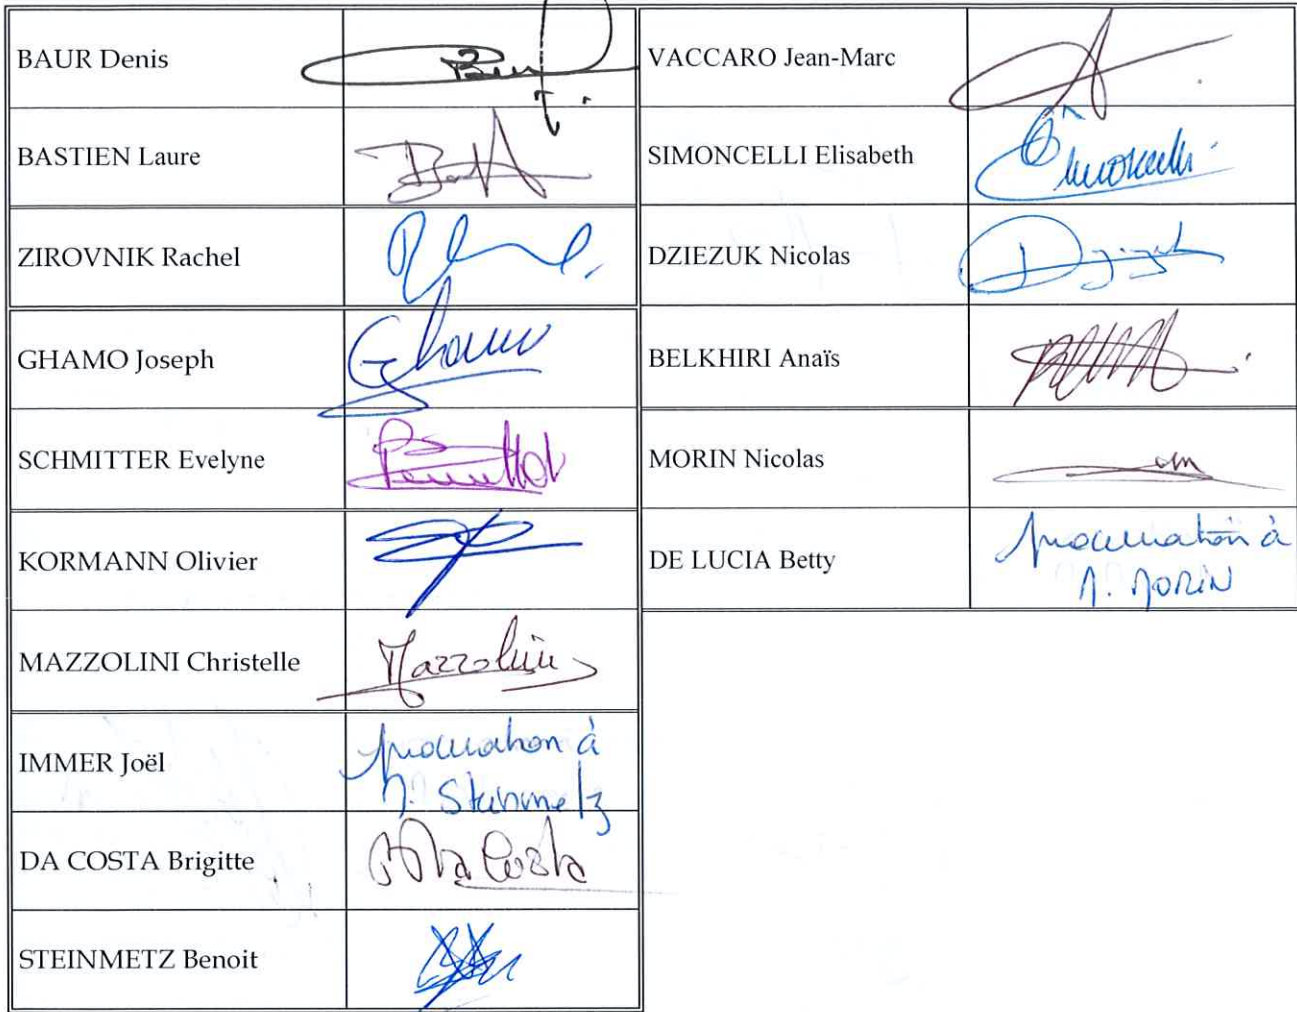 BAUR Denis
BASTIEN Laure
ZIROVNIK Rachel
GHAMO Joseph
Ghamo
SCHMITTER Evelyne
KORMANN Olivier
MAZZOLINI Christelle
Mazzolini
IMMER Joël
procuration à
M. Steinmetz
DA COSTA Brigitte
Da Costa
STEINMETZ Benoit
VACCARO Jean-Marc
SIMONCELLI Elisabeth
Simoncelli
DZIEZUK Nicolas
BELKHIRI Anaïs
MORIN Nicolas
DE LUCIA Betty
procuration à
M. MORIN